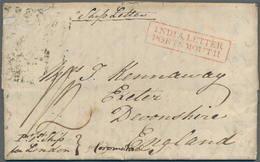 Ship Letter
INDIA LETTER
PORTSMOUTH
T. Kennaway
Exeter
Devonshire
England
pr. Ship
London